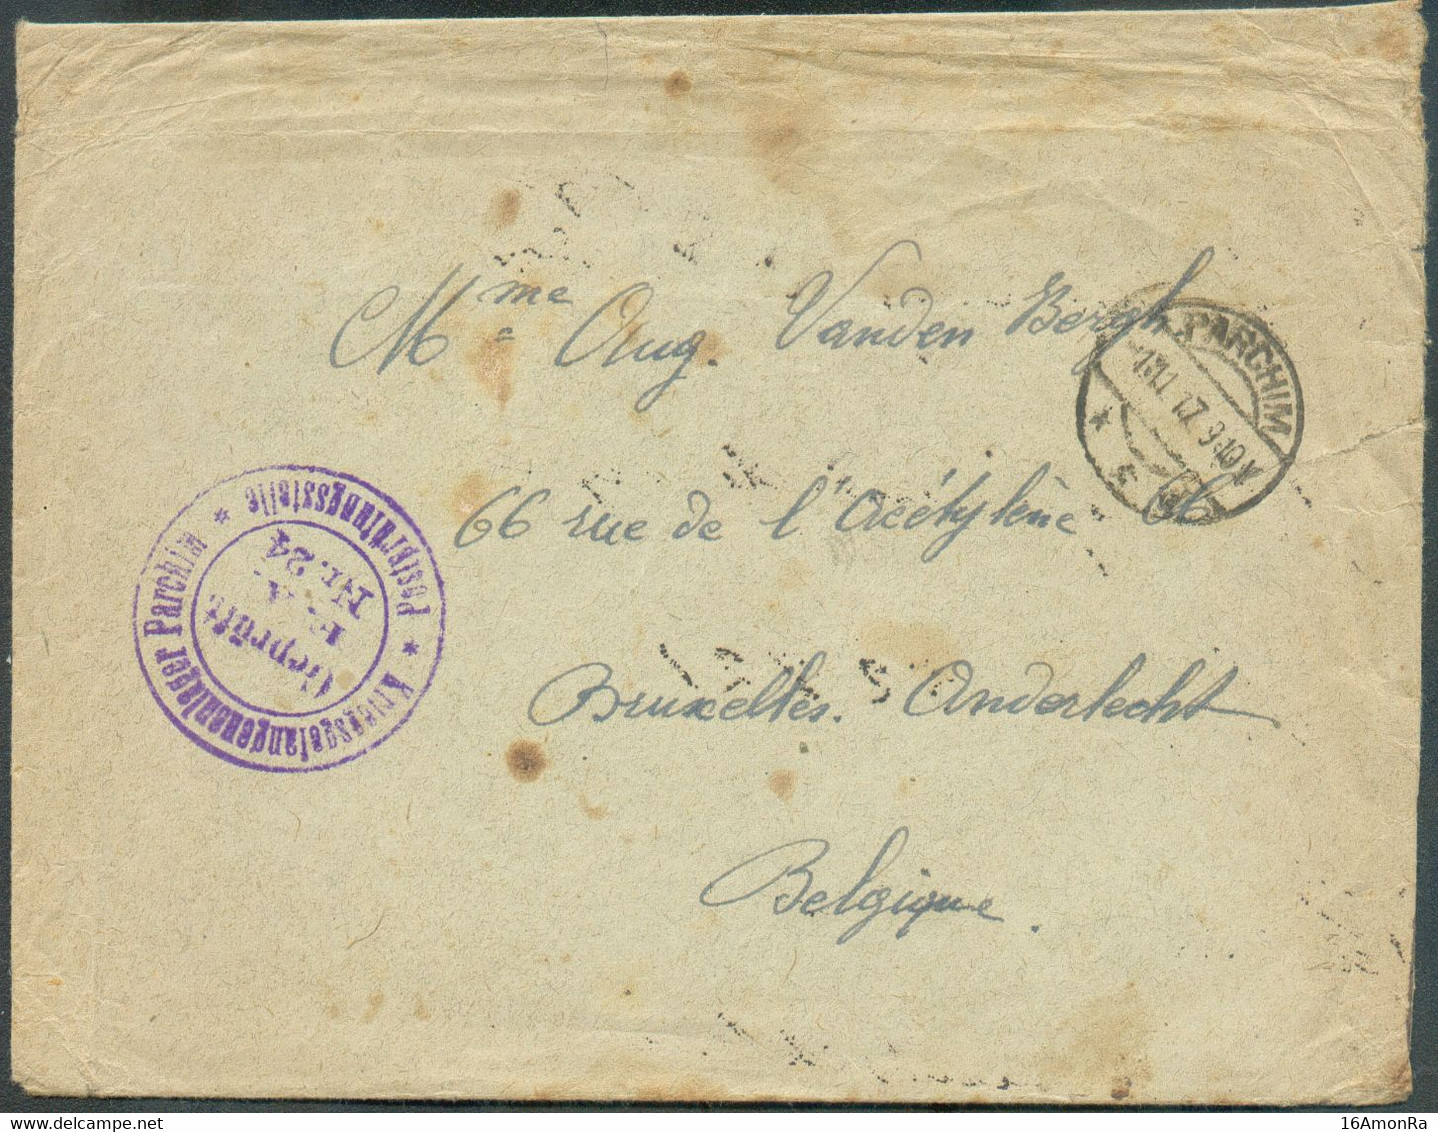 Mme Aug. Vanden Bergh
66 rue de l'Acétylène 66
Bruxelles. Anderlecht
Belgique.
PARCHIM
* Kriegsgefangenenlager Parchim * Postprüfungsstelle
Geprüft.
F. A.
Nr. 24
www.delcampe.net
16AmonRa